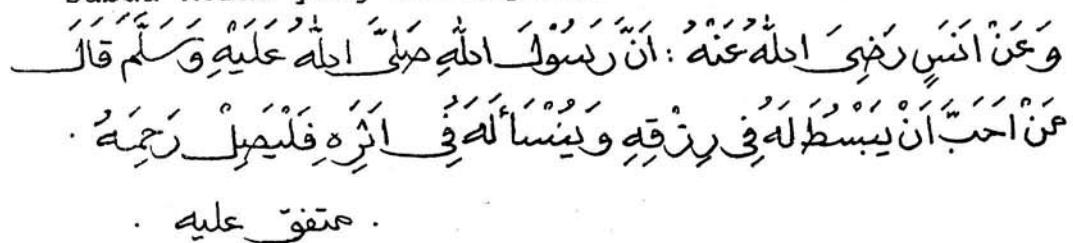 وَعَنْ اَنَسٍ رَضِيَ اللهُ عَنْهُ : اَنَّ رَسُوْلَ اللهِ صَلَّى اللهُ عَلَيْهِ وَسَلَّمَ قَالَ
مَنْ اَحَبَّ اَنْ يُبْسَطَ لَهُ فِى رِزْقِهِ وَيُنْسَأَ لَهُ فِى اَثَرِهِ فَلْيَصِلْ رَحِمَهُ .
. متفق عليه .